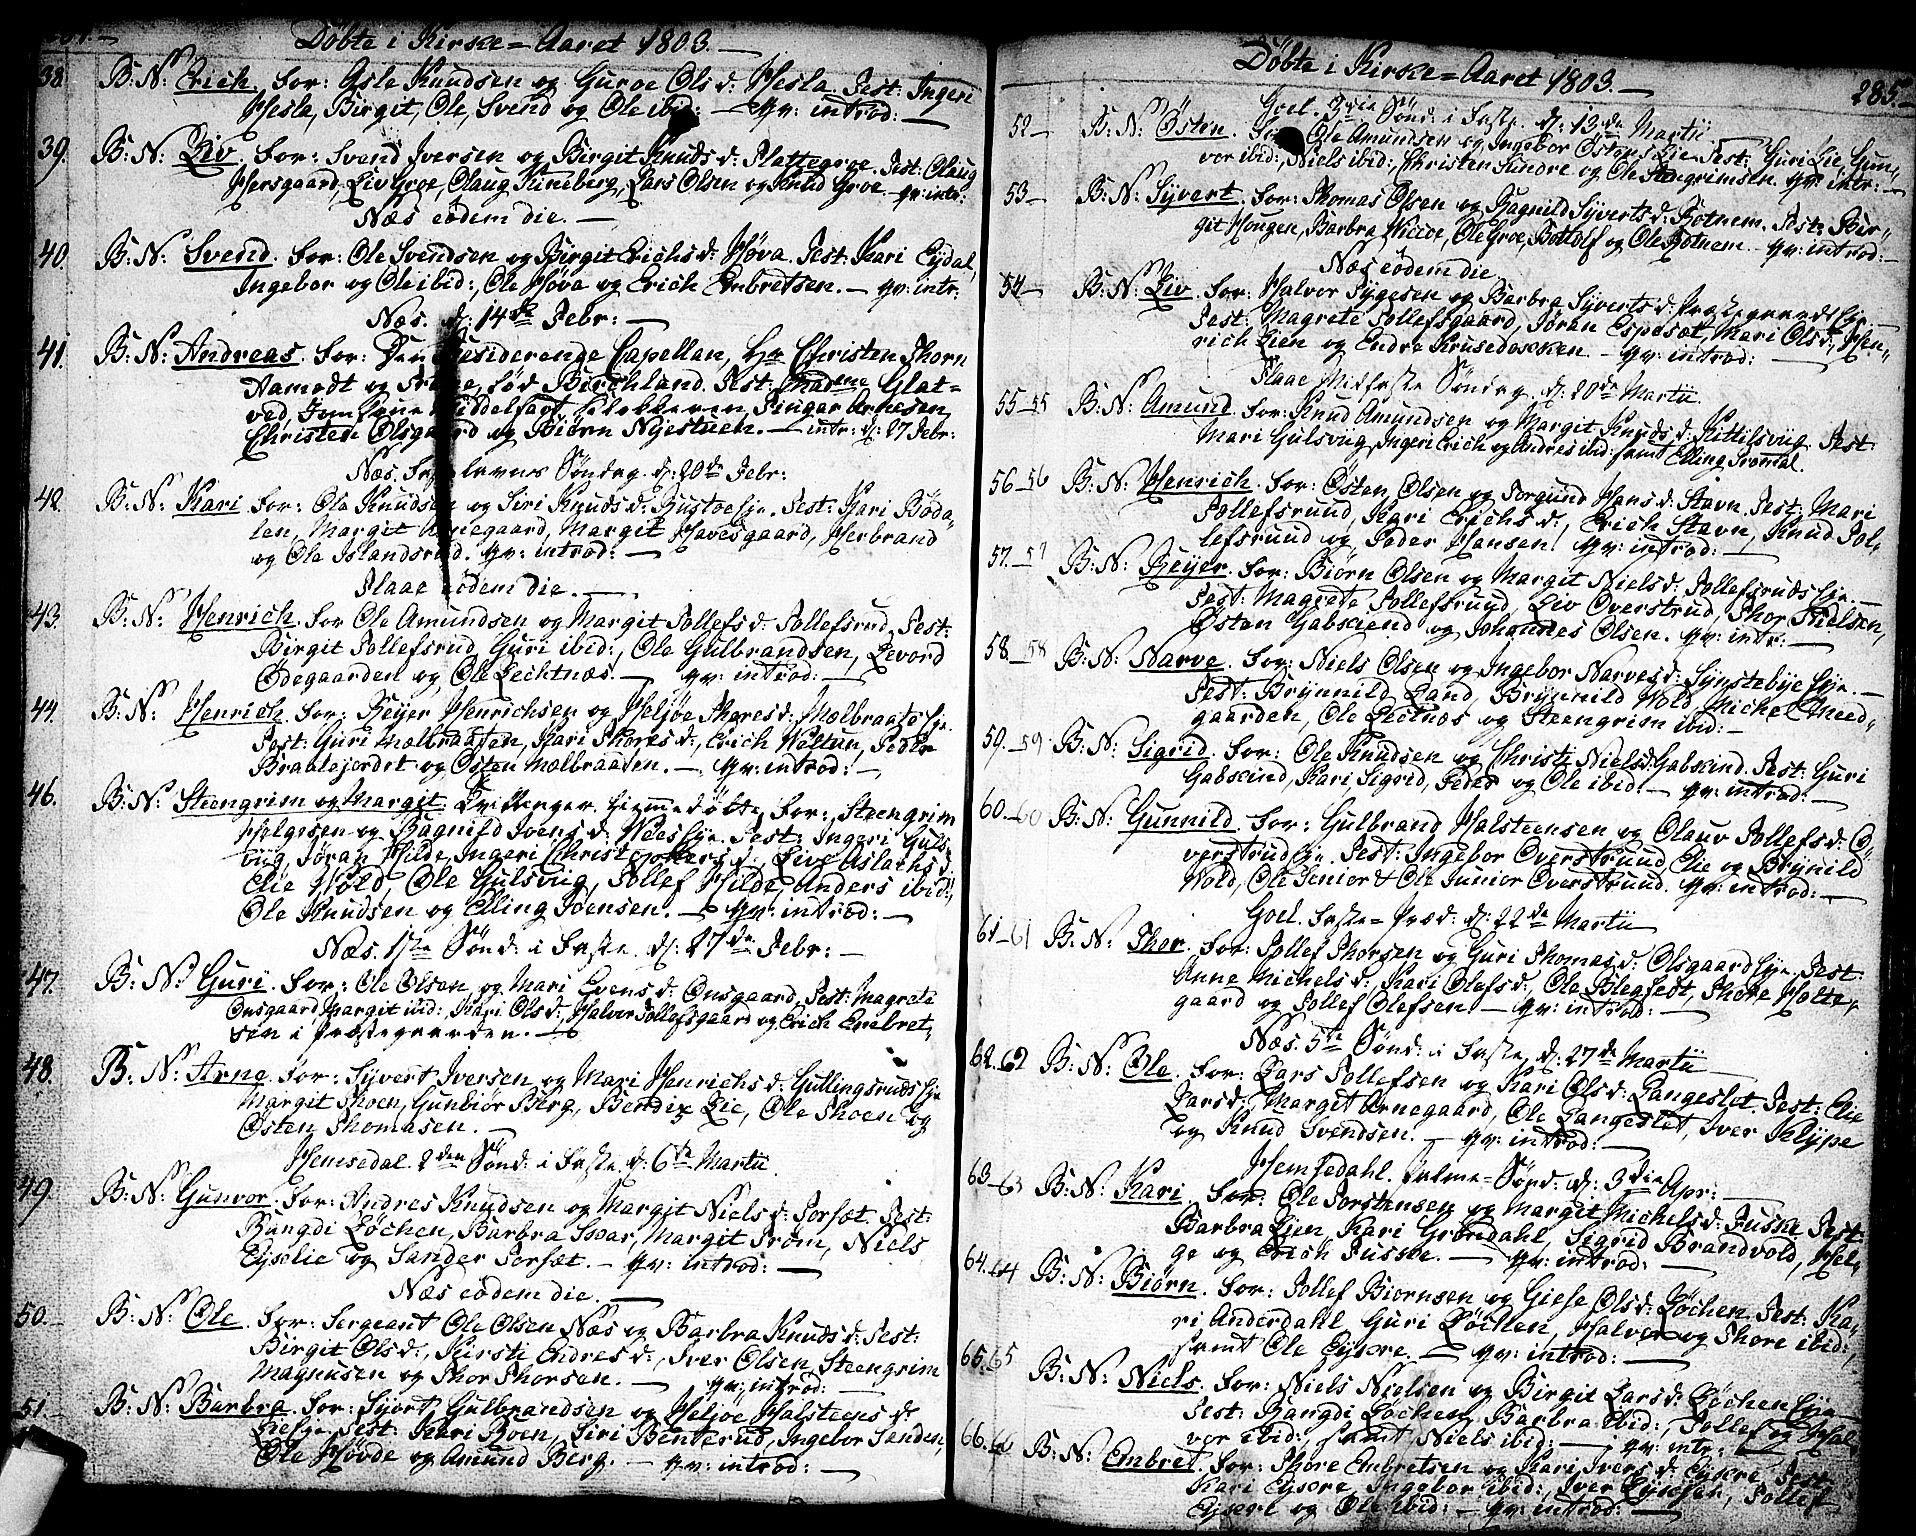 Döbte i Kirke = Aaret 1803.
38 B: N: Erich. For: Asle Knudsen og Guroe Ols d: Hesla. Test: Ingeri
Hesla, Birgit, Ole, Svend og Ole ibid: — qv: introd: —
39. B: N: Liv. For: Svend Iversen og Birgit Knuds d: Plattegroe. Test: Olaug
Hersgaard, Liv Groe, Olaug Trineberg, Lars Olsen og Knud Groe. qv: intr:
Næs eodem die. —
40. B: N: Svend. For: Ole Svendsen og Birgit Erichs d: Höva. Test: Kari Eydal,
Ingebor og Ole ibid:, Ole Höva og Erich Embretsen. — qv: intr:
Næs. d: 14de Febr: —
41. B: N: Andreas. For: Den Residerende Capellan, Hr Christen Thorn
Aamodt og Frue, föd Birchland. Test: Madme Glat=
ved, Middelfart, Klokkeren, Arnesen,
Christen Olsgaard og Biörn Nyestuen. — intr: d: 27 Febr:
Næs. Fastelavns Söndag. d: 20de Febr:
42. B: N: Kari. For: Ole Knudsen og Siri Knuds d: Rustoe Eje. Test: Kari Böda-
len, Margit Arnegaard, Margit Havesgaard, Herbrand
og Ole Islandsrud. qv: introd: —
Flaae eodem die. —
43. B: N: Henrich. For Ole Amundsen og Margit Tollefs d: Tollefsrud. Test:
Birgit Tollefsrud, Guri ibid:, Ole Gulbrandsen, Levord
Ödegaarden og Ole Lechtnæs. — qv: introd: —
44. B: N: Henrich. For: Reyer Henrichsen og Heljöe Thores d: Mælbraate Eje.
Test: Guri Mælbraaten, Kari Thores d:, Erich Veltun, Peder
Braatejordet og Östen Mælbraaten. — qv: introd: —
46. B: N: Steengrim og Margit. Tvillenger. hiemmedöbte. For: Steengrim
Helgesen og Ragnild Ivers d: Nees Eje. Test: Ingeri Guls
viig, Jöran Hilde, Ingeri Christophers d:, Live Aslachs d:
Elie Wold, Ole Gulsviig, Tollef Hilde, Anders ibid:,
Ole Knudsen og Elling Joensen. — qv: introd: —
Næs. 1ste Sönd: i Faste. d: 27de Febr: —
47. B: N: Guri. For: Ole Olsen og Mari Evens d: Onsgaard. Test: Magrete
Onsgaard, Margit ibid:, Mari Ols d:, Halvor Tollefsgaard og Erich Enebret-
sen i Præstegaarden. —
48. B: N: Arne. For: Syvert Iversen og Mari Henrichs d: Gullingsruds Eje
Margit Thoen, Gunbiör Berg, Bendix Lie, Ole Thoen og
Östen Thomasen. —
Hemsedal. 2den Sönd: i Faste d: 6te Martii
49 B: N: Gunvor. For: Andres Knudsen og Margit Niels d: Torset. Test:
Rangdi Löchen, Barbra Svar, Margit Trom, Niels
Ejselie og Sander Torset. — qv: introd: —
Næs eodem die. —
50. B: N: Ole. For: Sergeant Ole Olsen Næs og Barbra Knuds d: Test:
Birgit Ols d:, Kirsti Endres d:, Iver Olsen, Steengrim
Magnusen og Thor Thorsen. — qv: introd: —
51. B: N: Barbra. For: Sjovt Gulbrandsen og Heljöe Halsteens d:
Lie Eje. Test: Kari Roen, Siri Benterud, Ingebor Sanden
Ole Hövde og Amund Berg. — qv: introd: —
Döbte i Kirke = Aaret 1803. —
285. —
Goel. 3die Sönd: i Faste. d: 13de Martii
52 — B: N: Östen. For: Ole Amundsen og Ingebor Östens Lie. Test: Guri Lie, Gun-
vor ibid:, Niels ibid:, Christen Sundre og Ole Steengrimsen. qv: intr: —
53 — B: N: Syvert. For: Thomas Olsen og Ragnild Syverts d: Rotnem. Test: Bir-
git Hougen, Barbra Wiioe, Ole Groe, Bottolf og Ole Rotnem. qv: introd: —
Næs eodem die.
54 — B: N: Liv. For: Halvor Tygesen og Barbra Syverts d: Præstegaards Eje. —
Test: Magrete Tollefsgaard, Jöran Espeset, Mari Ols d:, Hen-
rich Lien og Endre Krusedokken. — qv: introd: —
Flaae Midfaste Söndag. d: 20de Martii.
55 — 55 B: N: Amund. For: Knud Amundsen og Margit Knuds d: Kittilsviig. Test:
Mari Gulsviig, Ingeri Erich og Andres ibid: samt Elling Tromal.
56 — 56 B: N: Henrich. For: Östen Olsen og Jorgund Hans d: Stavn. Test: Mari
Tollefsruud, Kari Erichs d:, Erich Stavn, Knud Tol-
lefsruud og Peder Hansen. qv: introd: —
57. — 57 B: N: Reyer. For: Biörn Olsen og Margit Niels d: Tollefsruds Eje. —
Test: Magrete Tollefsruud, Liv Overstrud, Thor Nielsen,
Östen Gabskiend og Johannes Olsen. qv: intr: —
58. — 58 B: N: Narve. For: Niels Olsen og Ingebor Narves d: Synstebye Eje. —
Test: Brynnild Land, Brynnild Wold, Michel Need-
gaarden, Ole Lectnæs og Steengrim ibid: —
59. — 59 B: N: Sigrid. For: Ole Knudsen og Christi Niels d: Gabskind. Test: Guri
Gabskind, Kari, Sigrid, Peder og Ole ibid. — qv: introd: —
60. — 60 B: N: Gunnild. For: Gulbrand Halsteensen og Olauv Tollefs d: O-
verstrud Eje. Test: Ingebor Overstruud, Elie og Brynild
Wold, Ole Senior & Ole Junior Overstruud. qv: introd: —
Goel. Faste = Præd: d: 22de Martii —
61 — 61 B: N: Thor. For: Tollef Thorsen og Guri Thomas d: Olsgaard Eje. Test:
Anne Michels d:, Kari Olefs d:, Ole Blegfedt, Thore Holte-
gaard og Tollef Olefsen. — qv: introd: —
Næs. 5te Sönd: i Faste, d: 27de Martii —
62. 62 B: N: Ole. For: Lars Tollefsen og Kari Ols d: Langeslet. Test: Elie
Lars d:, Margit Arnegaard, Ole Langeslet, Iver Klÿpe
og Knud Svendsen. — qv: introd: —
Hemsedahl. Palme = Sönd: d: 3die Apr: —
63 — 63 B: N: Kari. For: Ole Torstensen og Margit Michels d: Fuske. Test:
Barbra Lien, Kari Gröndahl, Sigrid Brandvold, Hel-
ge og Erich Fuske. — qv: introd: —
64. 64 B: N: Biörn. For: Tollef Biornsen og Giese Ols d: Löchen. Test: Ka-
ri Anderdahl, Guri Löchen, Halvor og Thore ibid:,
samt Ole Eysore. — qv: introd: —
65. 65 B: N: Niels. For: Niels Nielsen og Birgit Lars d: Löchen Eje
Test: Rangdi Löchen, Barbra ibid:, Tollef og Hal-
vor ibid:, samt Niels ibid: — qv: intr: —
66. 66 B: N: Embret. For: Thore Embretsen og Kari Ivers d: Eysore. Test:
Kari Eysore, Ingebor ibid:, Iver Eysore, Tollef
Eysore og Ole ibid: — qv: introd: —